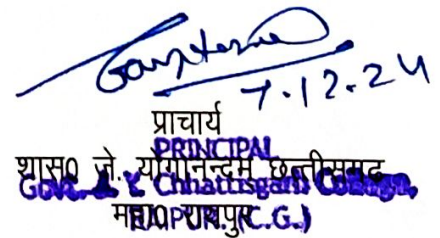 7.12.24
प्राचार्य
PRINCIPAL
शास0 जे. योगानन्दम छत्तीसगढ़
Govt. J. Y. Chhattisgarh College,
महा0 रायपुर
RAIPUR (C.G.)